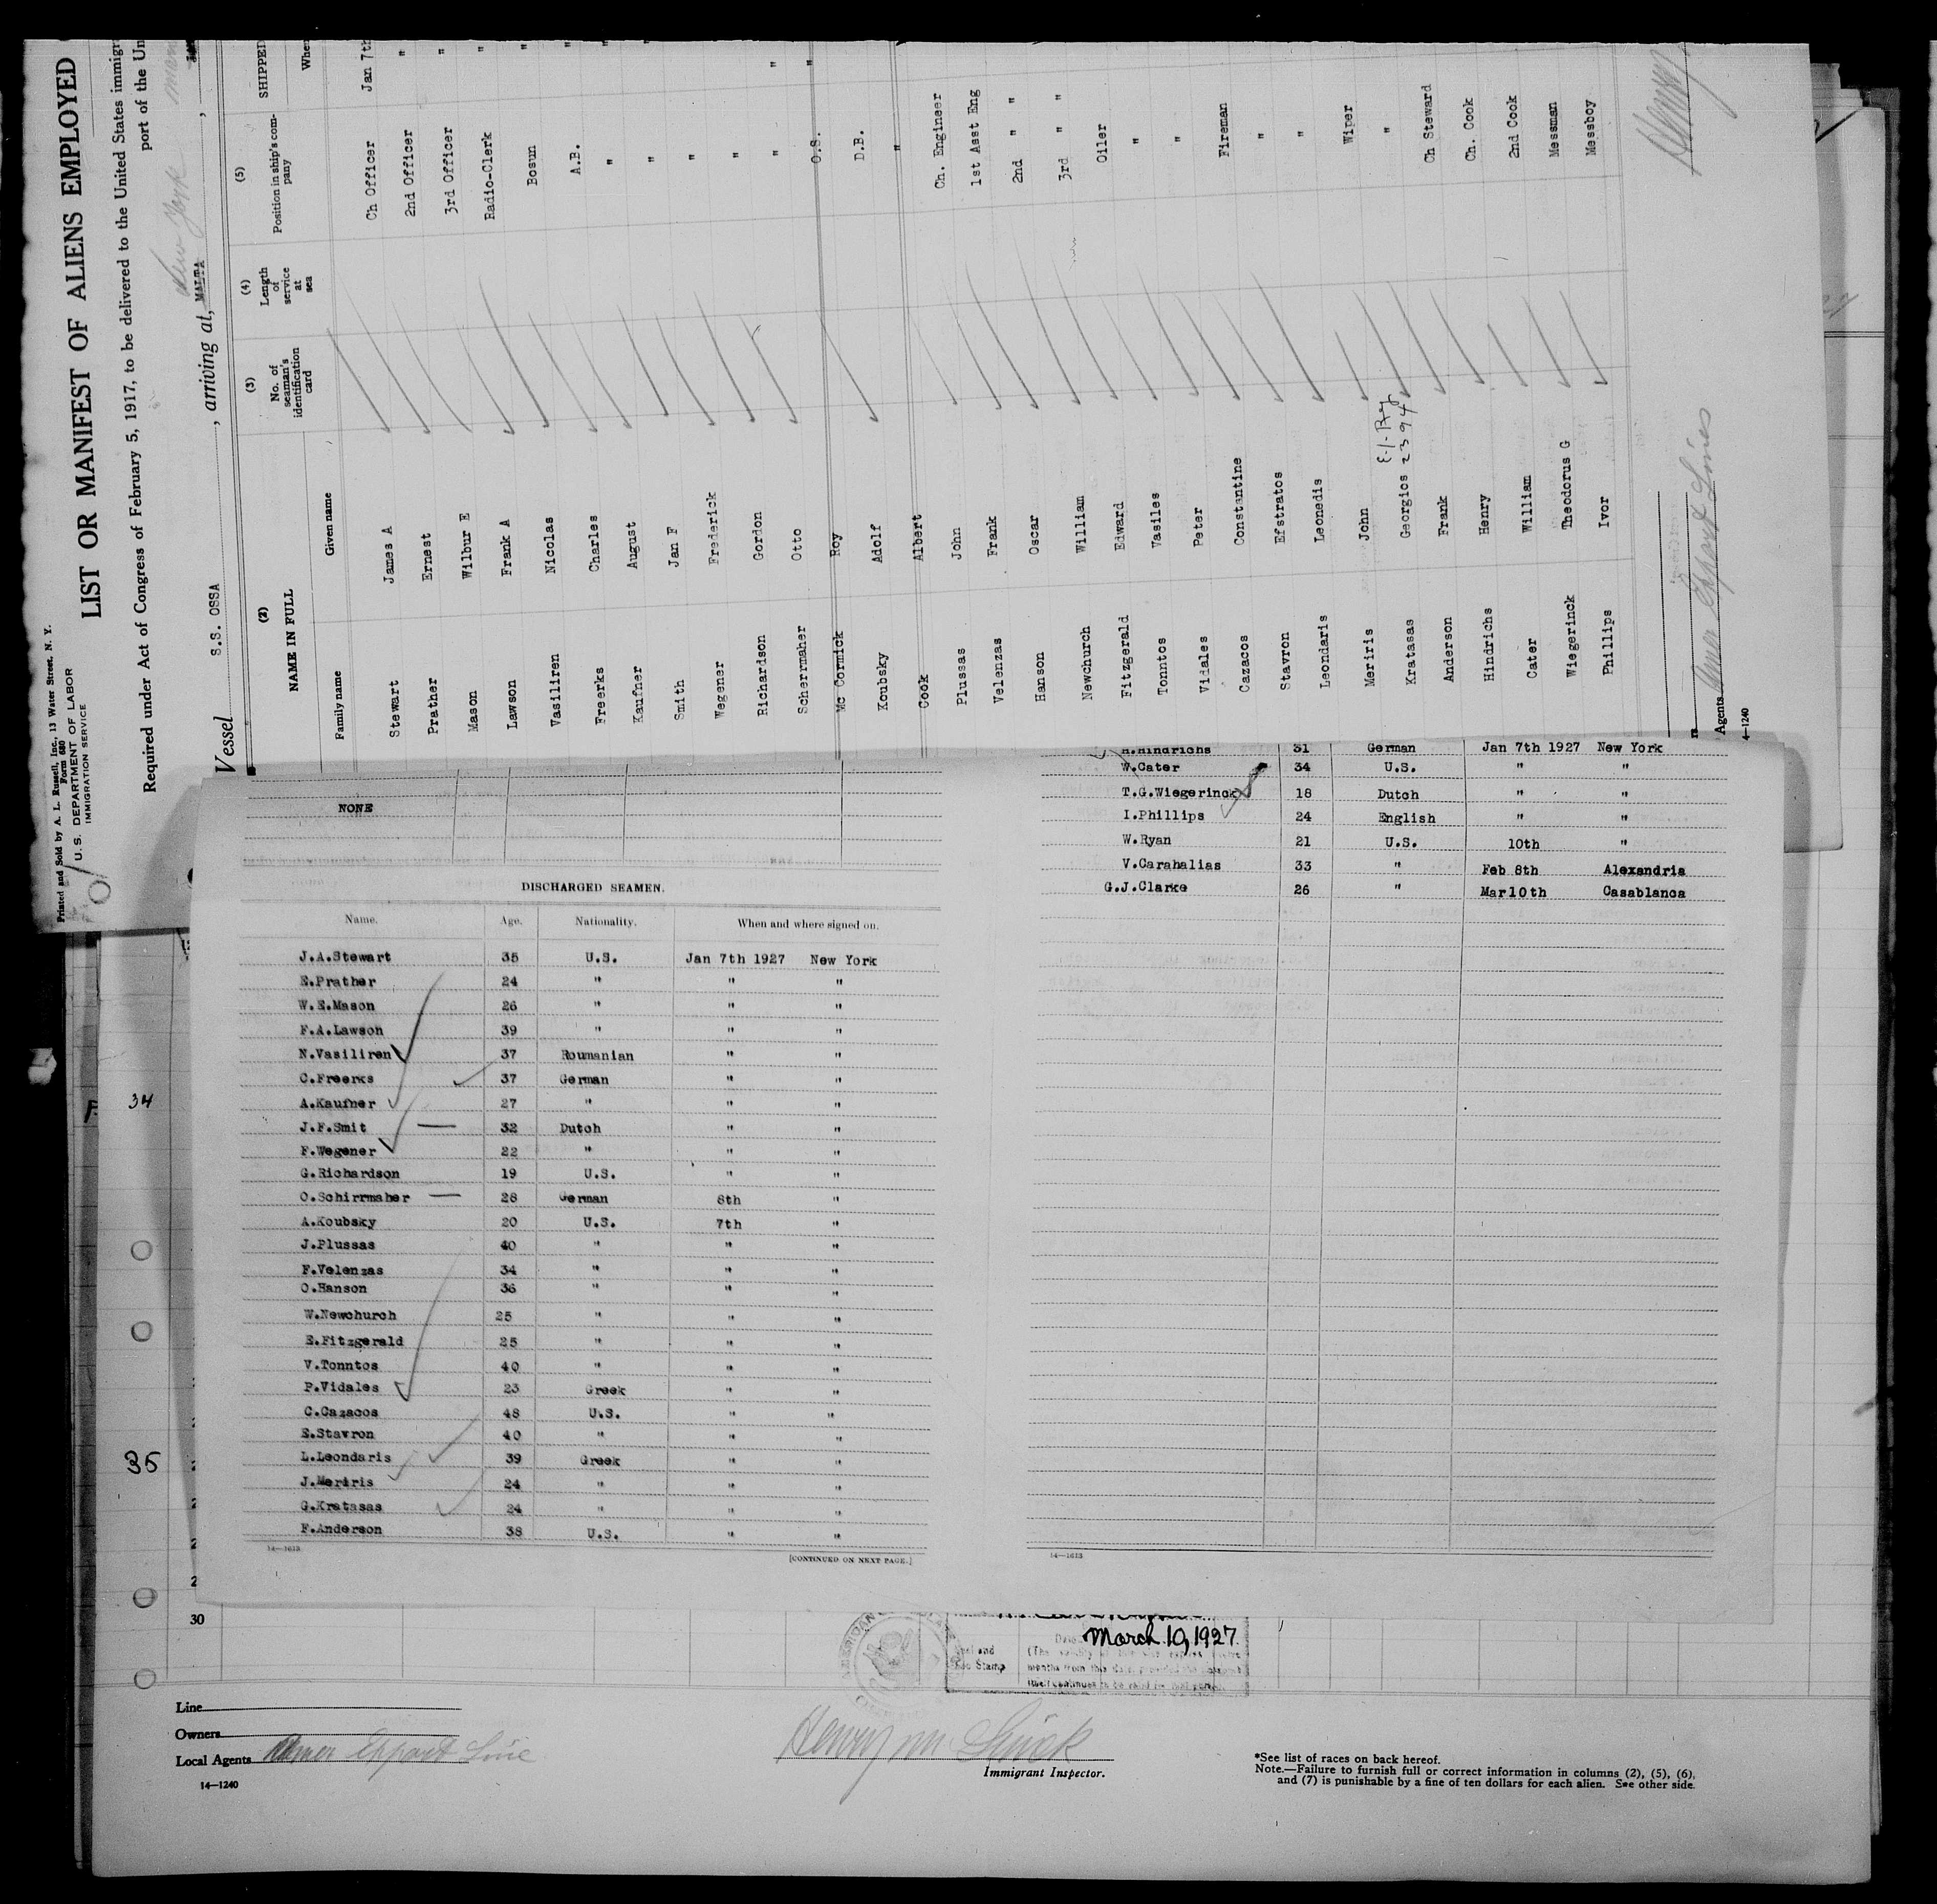 Printed and Sold by A. L. Russell, Inc., 13 Water Street, N. Y.
Form 680
U. S. DEPARTMENT OF LABOR
IMMIGRATION SERVICE
LIST OR MANIFEST OF ALIENS EMPLOYED
Required under Act of Congress of February 5, 1917, to be delivered to the United States immigr
port of the Un
Vessel S.S. OSSA , arriving at, MALTA New York ,
(2) (3) (4) (5) SHIPPED
NAME IN FULL No. of seaman's identification card Length of service at sea Position in ship's company When
Family name Given name
Stewart James A Ch Officer Jan 7th
Prather Ernest 2nd Officer "
Mason Wilbur E 3rd Officer "
Lawson Frank A Radio-Clerk "
Vasiliren Nicolas Bosun "
Freerks Charles A.B. "
Kaufner August " "
Smith Jan F " "
Wegener Frederick "
Richardson Gordon "
Schermaher Otto " "
Mc Cormick Roy O.S. "
Koubsky Adolf D.B.
Cook Albert "
Plussas John Ch. Engineer
Velenzas Frank 1st Asst Eng
Hanson Oscar 2nd " "
Newchurch William 3rd " "
Fitzgerald Edward Oiler
Tonntos Vasiles "
Vidales Peter "
Cazacos Constantine Fireman
Stavron Efstratos "
Leondaris Leonedis "
Meriris John Wiper
Kratasas Georgios 2394 "
Anderson Frank Ch Steward
Hindrichs Henry Ch. Cook
Cater William 2nd Cook
Wiegerinck Theodorus G Messman
Phillips Ivor Messboy
Agents Amer Export Lines
4-1240
NONE
DISCHARGED SEAMEN.
Name. Age. Nationality. When and where signed on.
J.A.Stewart 35 U.S. Jan 7th 1927 New York
E.Prather 24 " " "
W.E.Mason 26 " " "
F.A.Lawson 39 " " "
N.Vasiliren 37 Roumanian " "
C.Freerks 37 German " "
A.Kaufner 27 " " "
J.F.Smit 32 Dutch " "
F.Wegener 22 " " "
G.Richardson 19 U.S. " "
O.Schirrmaher 28 German 8th "
A.Koubsky 20 U.S. 7th "
J.Plussas 40 " " "
F.Velenzas 34 " " "
O.Hanson 36 " " "
W.Newchurch 25 " " "
E.Fitzgerald 25 " " "
V.Tonntos 40 " " "
P.Vidales 23 Greek " "
C.Cazacos 48 U.S. " "
E.Stavron 40 " " "
L.Leondaris 39 Greek " "
J.Meriris 24 " " "
G.Kratasas 24 " " "
F.Anderson 38 U.S. " "
14—1613 [CONTINUED ON NEXT PAGE.]
H.Hindrichs 31 German Jan 7th 1927 New York
W.Cater 34 U.S. " "
T.G.Wiegerinck 18 Dutch " "
I.Phillips 24 English " "
W.Ryan 21 U.S. 10th "
V.Carahalias 33 " Feb 8th Alexandria
G.J.Clarke 26 " Mar10th Casablanca
14—1613
34
35
30
March 10, 1927.
Line
Owners
Local Agents Amer Export Line
14—1240
Immigrant Inspector.
*See list of races on back hereof.
Note.—Failure to furnish full or correct information in columns (2), (5), (6),
and (7) is punishable by a fine of ten dollars for each alien. See other side.